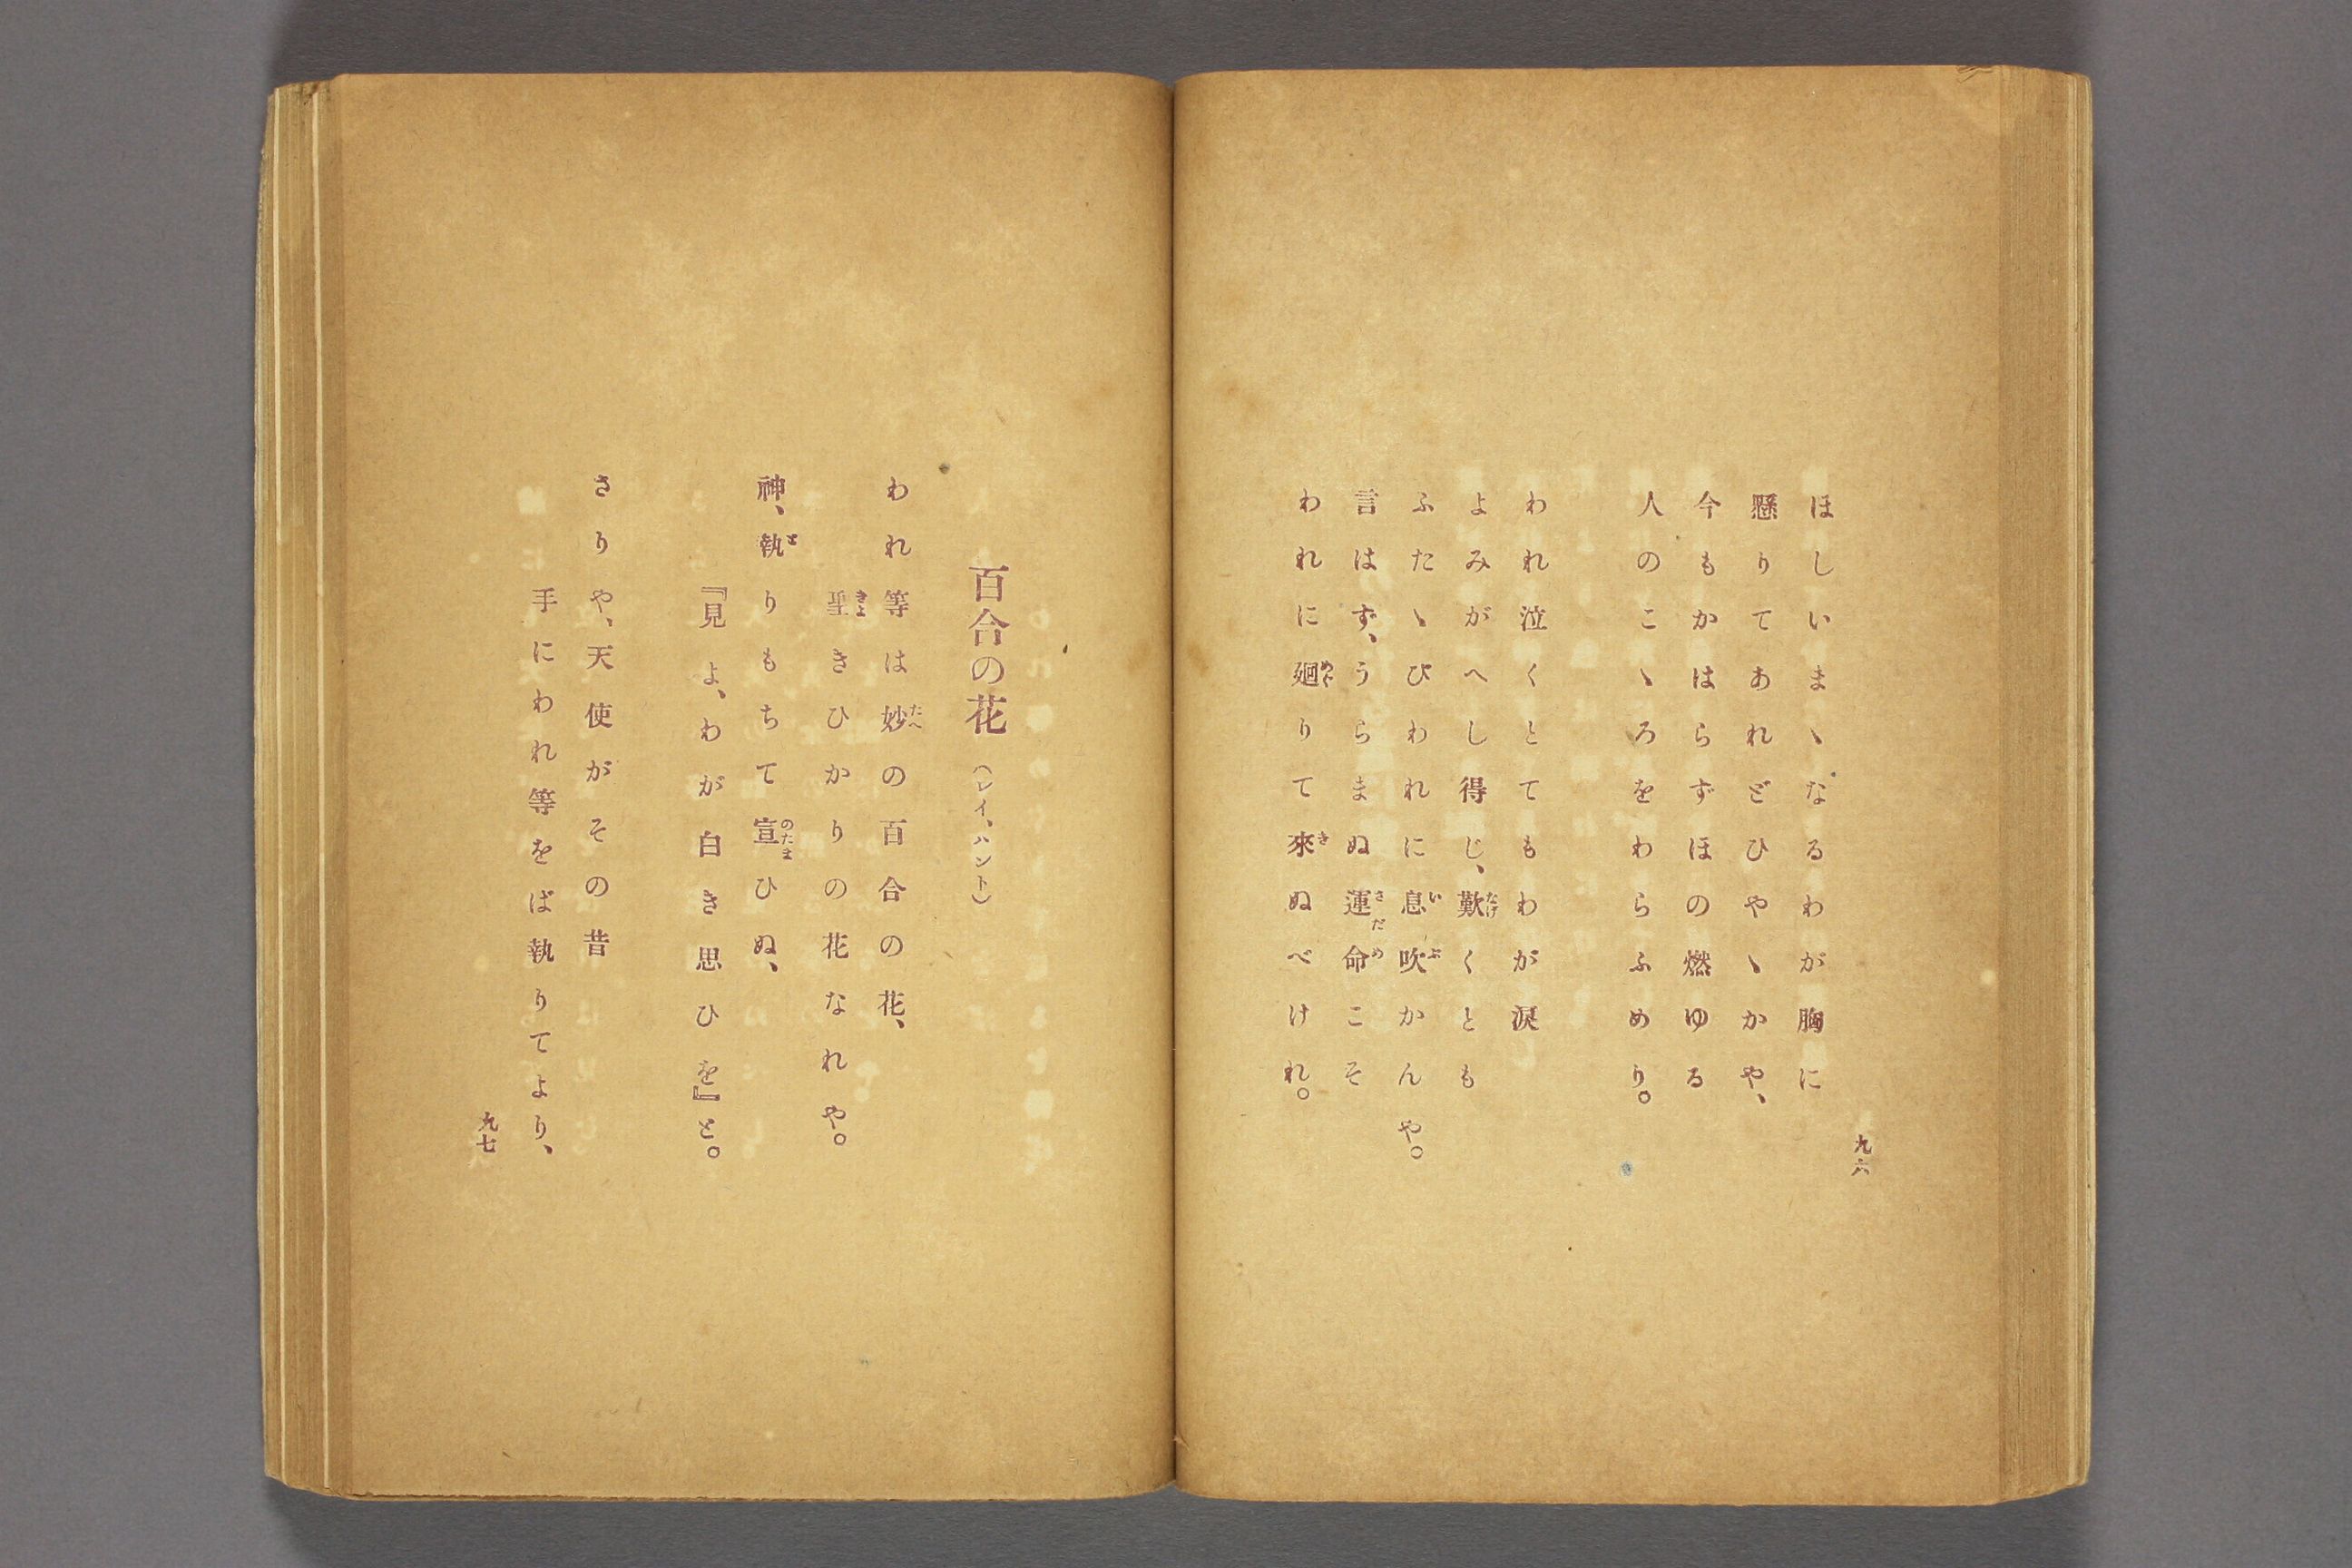 九六
ほしいまゝなるわが胸に
懸りてあれどひやゝかや、
今もかはらずほの燃ゆる
人のこゝろをわらふめり。
われ泣くとてもわが涙
よみがへし得じ、歎くとも
ふたゝびわれに息吹かんや。
言はず、うらまぬ運命こそ
われに廻りて來ぬべけれ。
百合の花（レイ、ハント）
われ等は妙の百合の花、
聖きひかりの花なれや。
神、執りもちて宣ひぬ、
『見よ、わが白き思ひを』と。
さりや、天使がその昔
手にわれ等をば執りてより、
九七